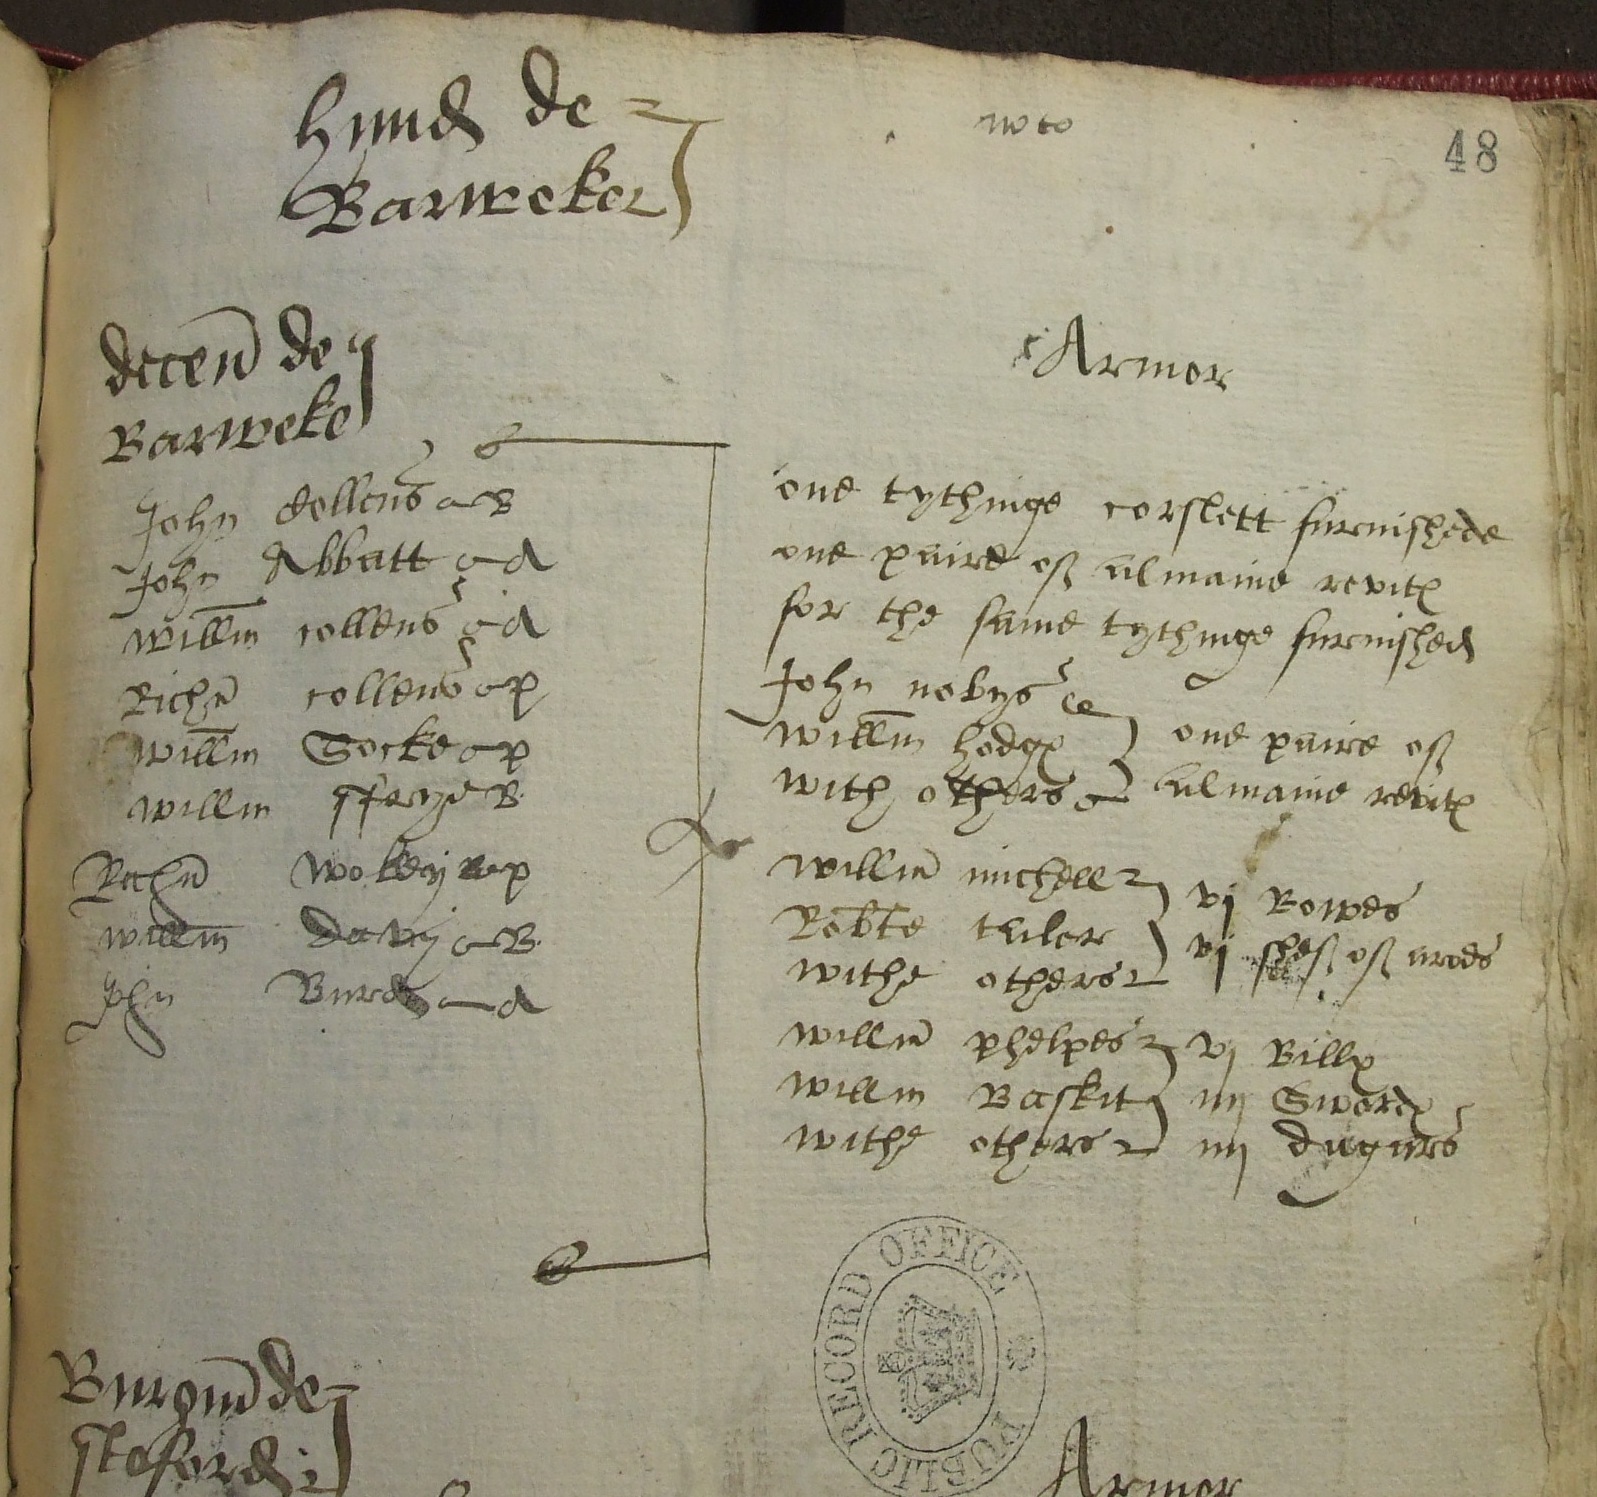 hund de
Barweke
noto
48
decen de
Barweke
Armor
John dollens a B
John Abbatt a A
Willm collens a A
Richu collens a p
Willm Socke a p
Willm B
Rychu a p
Willm Davy a B
Jhn a A
one tythinge corslett furnishede
one paire of almaine revitp
for the same tythinge furnished
John nobys
Willm hodgp
with others
one paire of
almaine revitp
Willm michell
Robte tailor
withe others
vj Bowes
vj shef of arods
Willm phelpes
Willm Baskit
withe others
vj Billp
iiij Swordp
iiij dagars
PUBLIC RECORD OFFICE
Burgum de
stoford
Armor